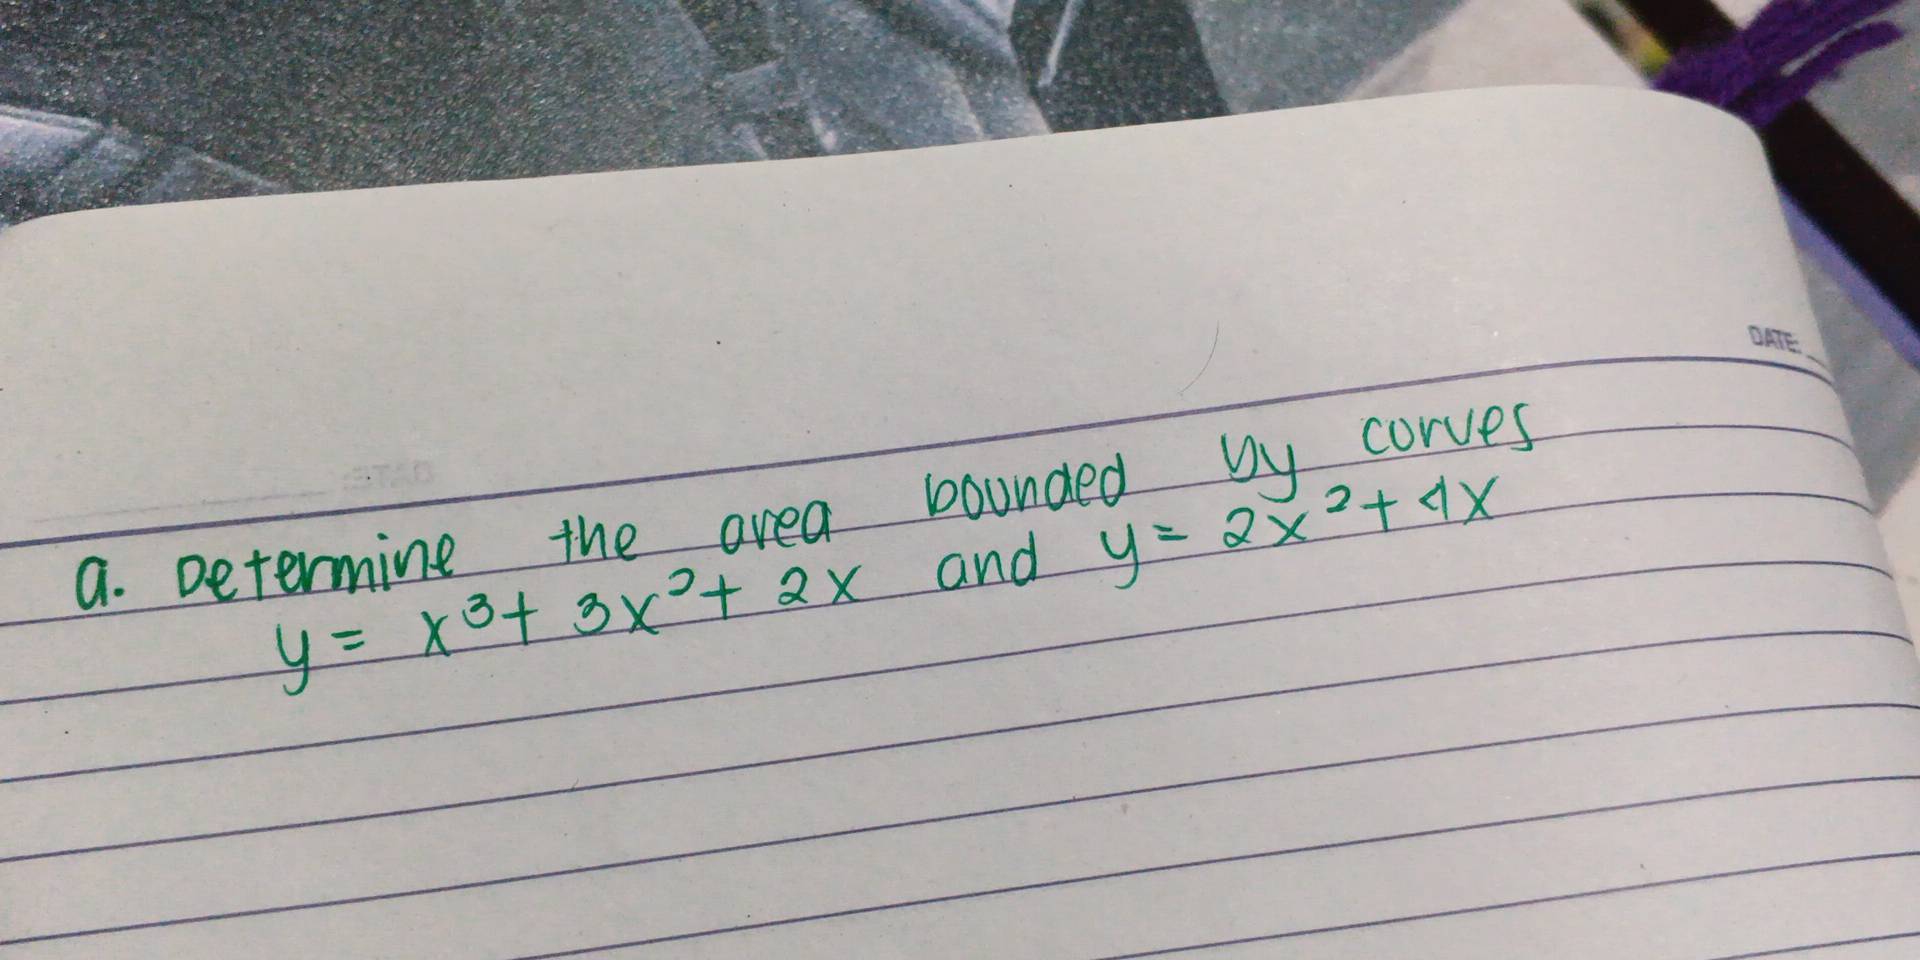 DATE:
a. Determine the area bounded by corves
y = x³ + 3x² + 2x and y = 2x² + 4x